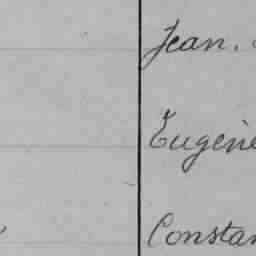 Jean.
Eugène
Constan